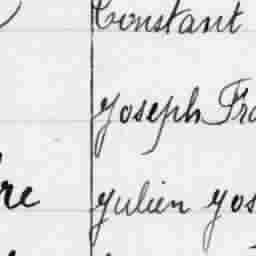 Constant
Joseph Fra
re Julien Jos